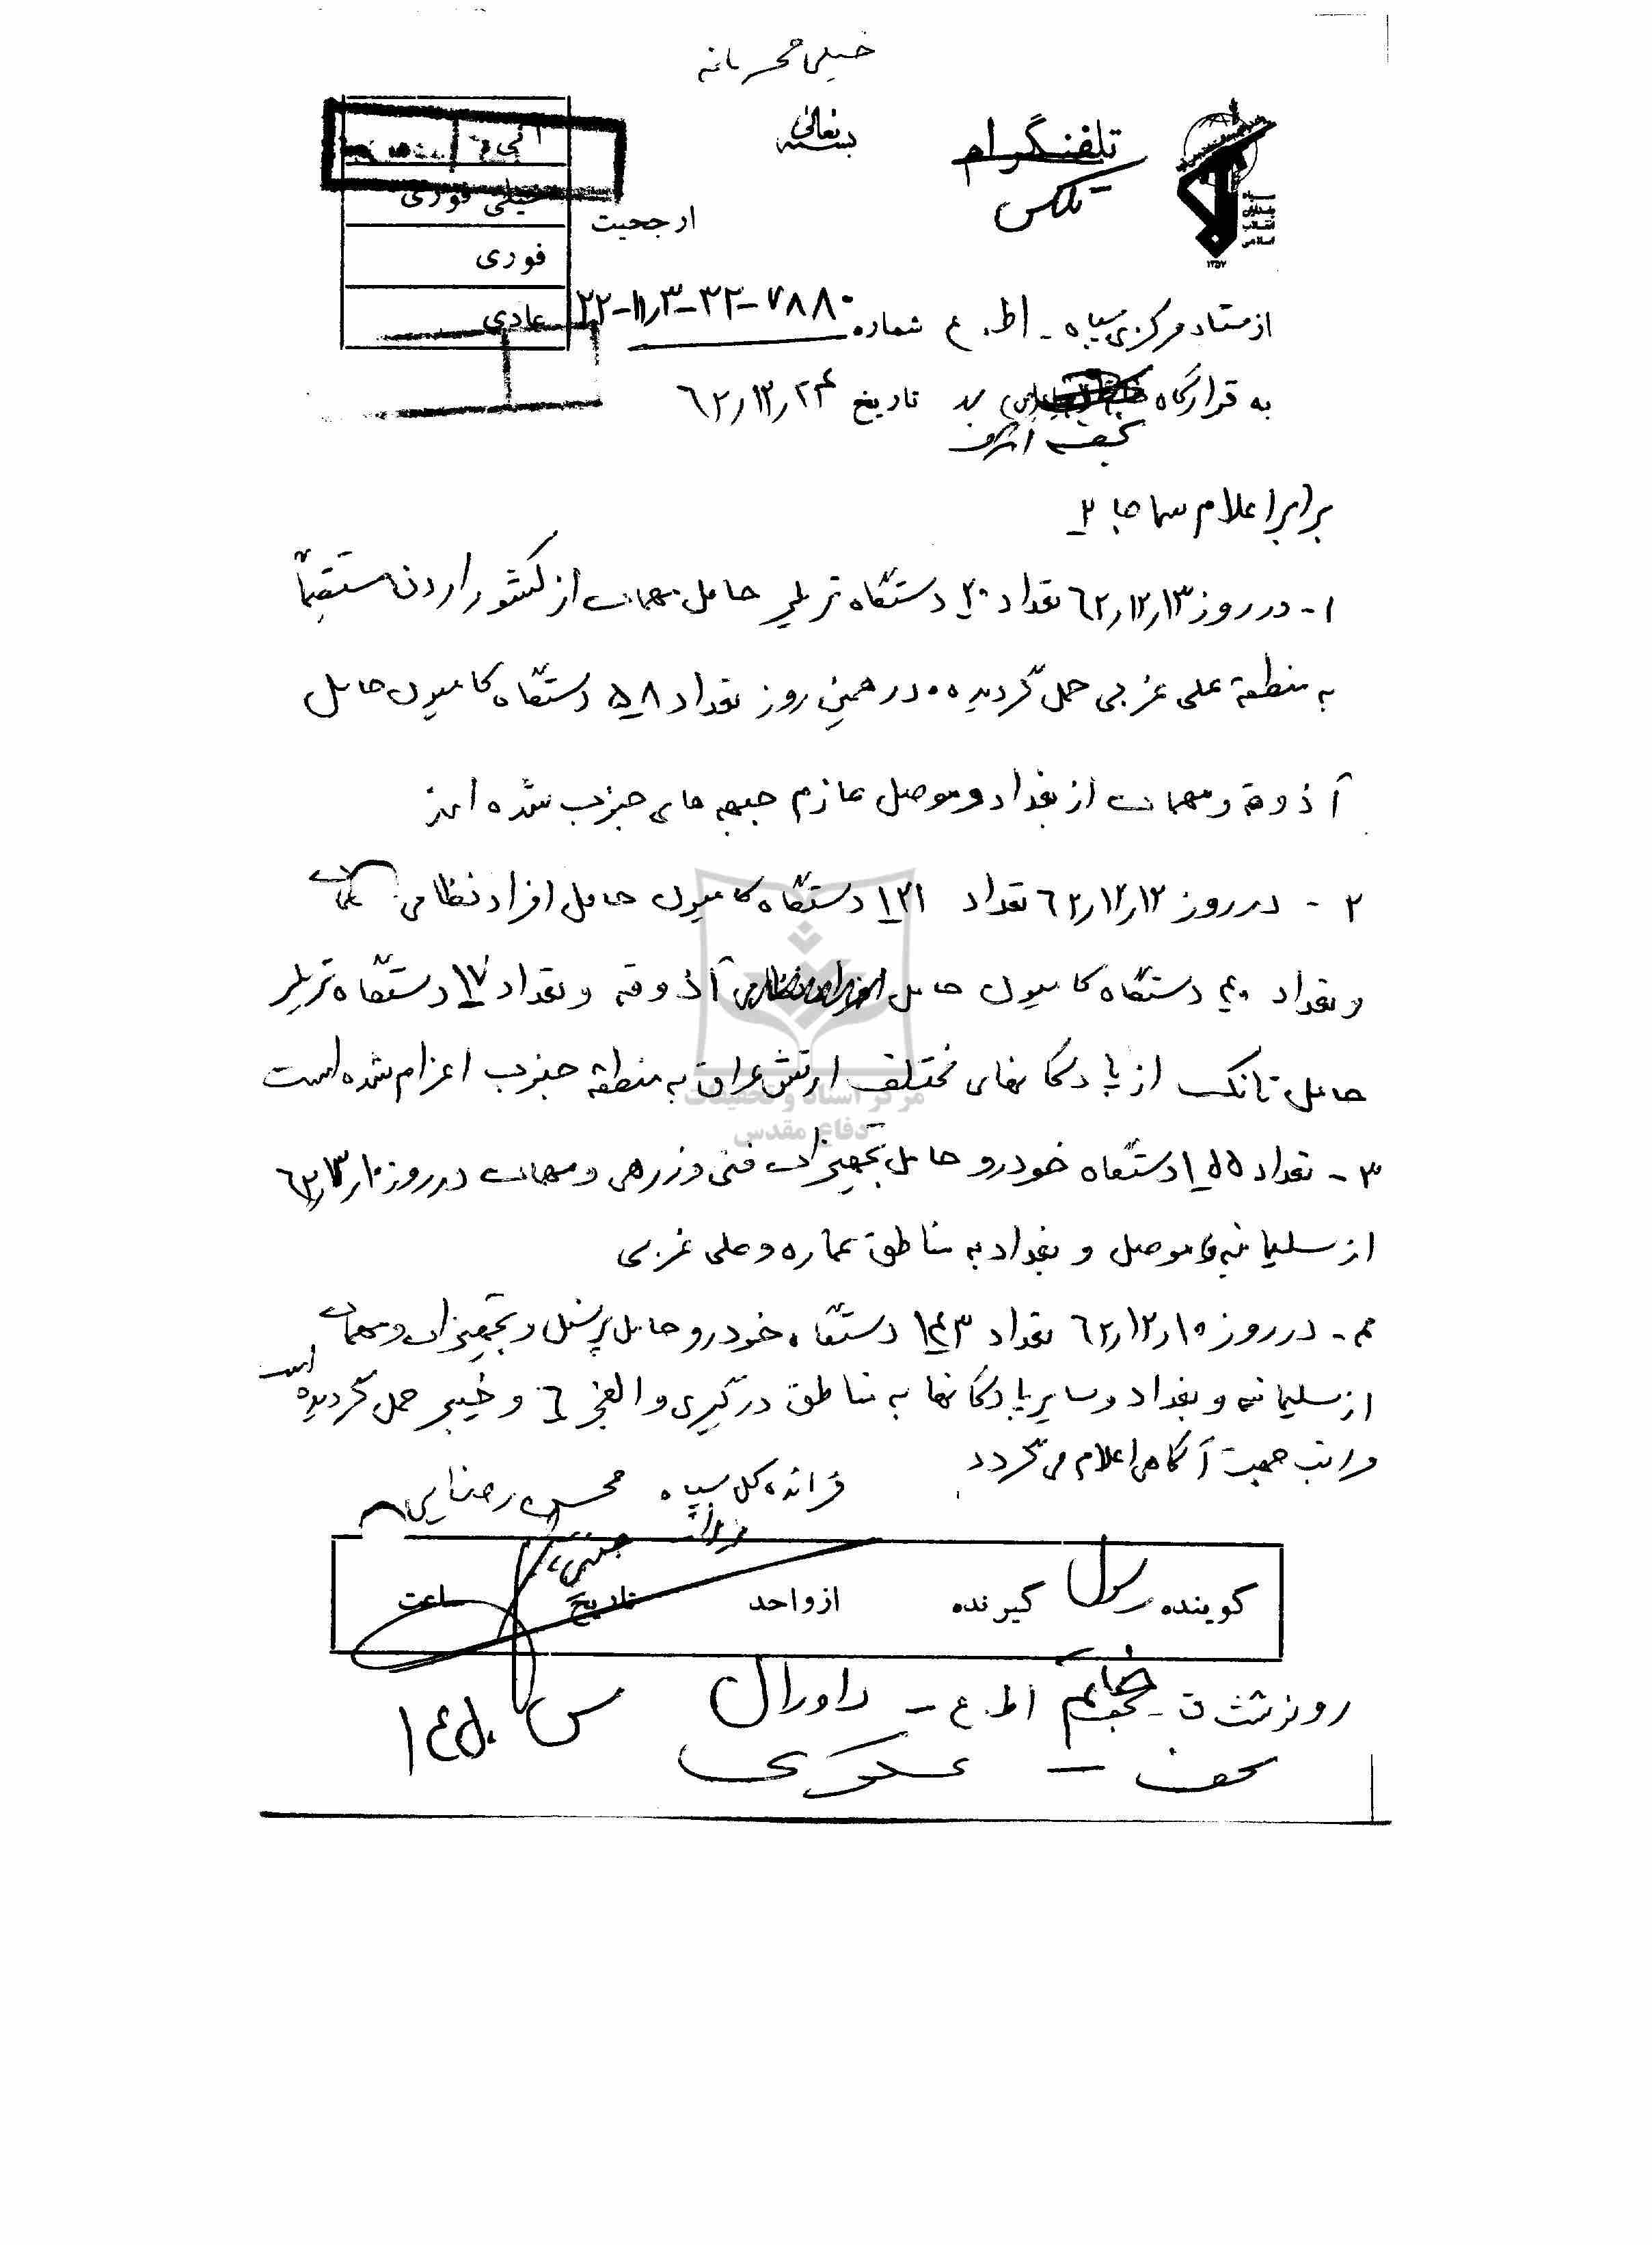 خیلی محرمانه
بسمه تعالی
تلفنگرام
تلکس
سپاه پاسداران انقلاب اسلامی
۱۳۵۷
ارجحیت
آنی
خیلی فوری
فوری
عادی
از ستاد مرکزی سپاه - اط. ع شماره ۷۸۸۰-۳۲-۱۱٫۳-۲۲
به قرارگاه تاریخ ۶۲٫۱۲٫۲۴
نجف اشرف
برابر اعلام سماجا ۲
۱- در روز ۶۲٫۱۲٫۱۳ تعداد ۲۰ دستگاه تریلی حامل مهمات از کشور اردن مستقیماً
به منطقه علی غربی حمل گردیده. در همین روز تعداد ۵۸ دستگاه کامیون حامل
آذوقه و مهمات از بغداد و موصل عازم جبهه های جنوب شده اند
۲- در روز ۶۲٫۱۲٫۱۲ تعداد ۱۲۱ دستگاه کامیون حامل افراد نظامی
و تعداد ۴۰ دستگاه کامیون حامل آذوقه و تعداد ۱۷ دستگاه تریلر
حامل تانک از پادگانهای مختلف ارتش عراق به منطقه جنوب اعزام شده است
مرکز اسناد و تحقیقات
دفاع مقدس
۳- تعداد ۱۵۵ دستگاه خودرو حامل تجهیزات فنی و زرهی و مهمات در روز ۶۲٫۱۲٫۱۰
از سلیمانیه و موصل و بغداد به مناطق عماره و علی غربی
۴- در روز ۶۲٫۱۲٫۱۰ تعداد ۱۴۳ دستگاه خودرو حامل پرسنل و تجهیزات و مهمات
از سلیمانیه و بغداد و سایر پادگانها به مناطق درگیری والفجر ۶ و خیبر حمل گردیده است
مراتب جهت آگاهی اعلام می گردد
فرمانده کل سپاه محسن رضایی
گوینده رسول گیرنده از واحد تاریخ ساعت
رونوشت ق - خاتم اط. ع - داورال س ۱۴۵۰
نجف - عسکری